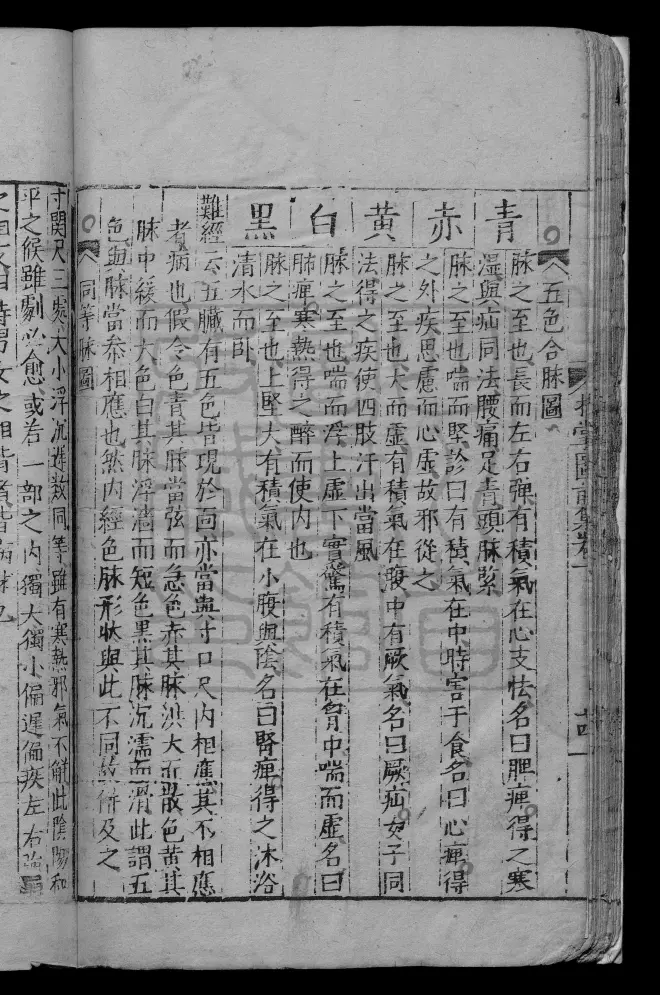 五色合脉圖
青
脉之至也長而左右彈有積氣在心支怯名曰脾痺得之寒
湿與疝同法腰痛足青頭脉緊
赤
脉之至也喘而堅診曰有積氣在中時害于食名曰心痺得
之外疾思慮而心虚故邪從之
黃
脉之至也大而虚有積氣在腹中有厥氣名曰厥疝女子同
法得之疾使四肢汗出當風
白
脉之至也喘而浮上虚下實驚有積氣在胷中喘而虚名曰
肺痺寒熱得之醉而使内也
黑
脉之至也上堅大有積氣在小腹與陰名曰腎痺得之沐浴
清水而卧
難經云五臟有五色皆現於面亦當與寸口尺内相應其不相應
者病也假令色青其脉當弦而急色赤其脉洪大而散色黄其
脉中緩而大色白其脉浮濇而短色黑其脉沉濡而滑此謂五
色與脉當参相應也然内經色脉形狀與此不同故併及之
同等脉圖
寸関尺三處大小浮沉遅数同等雖有寒熱邪氣不能此陰陽和
平之候雖劇必愈或若一部之内獨大獨小偏遲偏疾左右